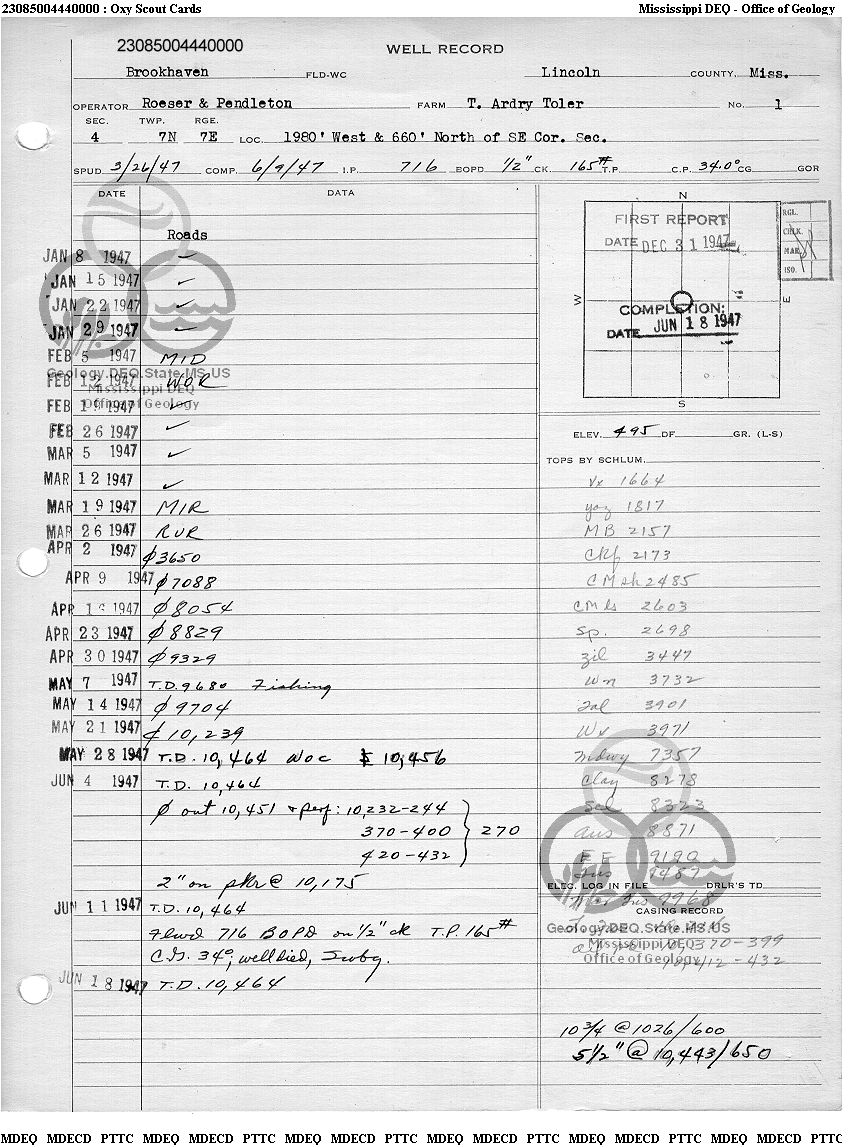 23085004440000 : Oxy Scout Cards
Mississippi DEQ - Office of Geology
23085004440000
WELL RECORD
Brookhaven FLD-WC Lincoln COUNTY, Miss.
OPERATOR Roeser & Pendleton FARM T. Ardry Toler No. 1
SEC. TWP. RGE.
4 7N 7E LOC. 1980' West & 660' North of SE Cor. Sec.
SPUD 3/26/47 COMP. 6/9/47 I.P. 716 BOPD 1/2" CK. 165# T.P. C.P. 34.0° CG GOR
DATE DATA
Roads
JAN 8 1947 ✓
JAN 15 1947 ✓
JAN 22 1947 ✓
JAN 29 1947 ✓
FEB 5 1947 MID
FEB 12 1947 WOR
FEB 19 1947 ✓
FEB 26 1947 ✓
MAR 5 1947 ✓
MAR 12 1947 ✓
MAR 19 1947 MIR
MAR 26 1947 RUR
APR 2 1947 ϕ 3650
APR 9 1947 ϕ 7088
APR 1947 ϕ 8054
APR 23 1947 ϕ 8829
APR 30 1947 ϕ 9329
MAY 7 1947 T.D. 9680 Fishing
MAY 14 1947 ϕ 9704
MAY 21 1947 ϕ 10,239
MAY 28 1947 T.D. 10,464 WOC 10,456
JUN 4 1947 T.D. 10,464
ϕ out 10,451 & perf: 10,232-244
370-400 } 270
420-432
2" on pkr @ 10,175
JUN 11 1947 T.D. 10,464
Flwd 716 BOPD on 1/2" ck T.P. 165#
C.G. 34°, well died, Swbg.
JUN 18 1947 T.D. 10,464
N
W
E
S
FIRST REPORT
DATE DEC 31 1947
COMPLETION:
DATE JUN 18 1947
RGL.
CHK.
MAP
ISO.
ELEV. 495 DF GR. (L-S)
TOPS BY SCHLUM.
Vx 1664
yaz 1817
MB 2157
Ckf 2173
CMsh 2485
CMls 2603
Sp. 2698
zil 3447
Wn 3732
Tal 3901
Wx 3971
Mdwy 7357
Clay 8278
Sel 8323
Aus 8871
EF 9190
Tus 9487
ELEC. LOG IN FILE DRLR'S TD
Mar Tus 9968
CASING RECORD
370-399
412-432
10 3/4 @ 1026/600
5 1/2" @ 10,443/650
Geology.DEQ.State.MS.US
Mississippi DEQ
Office of Geology
Geology.DEQ.State.MS.US
Mississippi DEQ
Office of Geology
MDEQ MDECD PTTC MDEQ MDECD PTTC MDEQ MDECD PTTC MDEQ MDECD PTTC MDEQ MDECD PTTC MDEQ MDECD PTTC